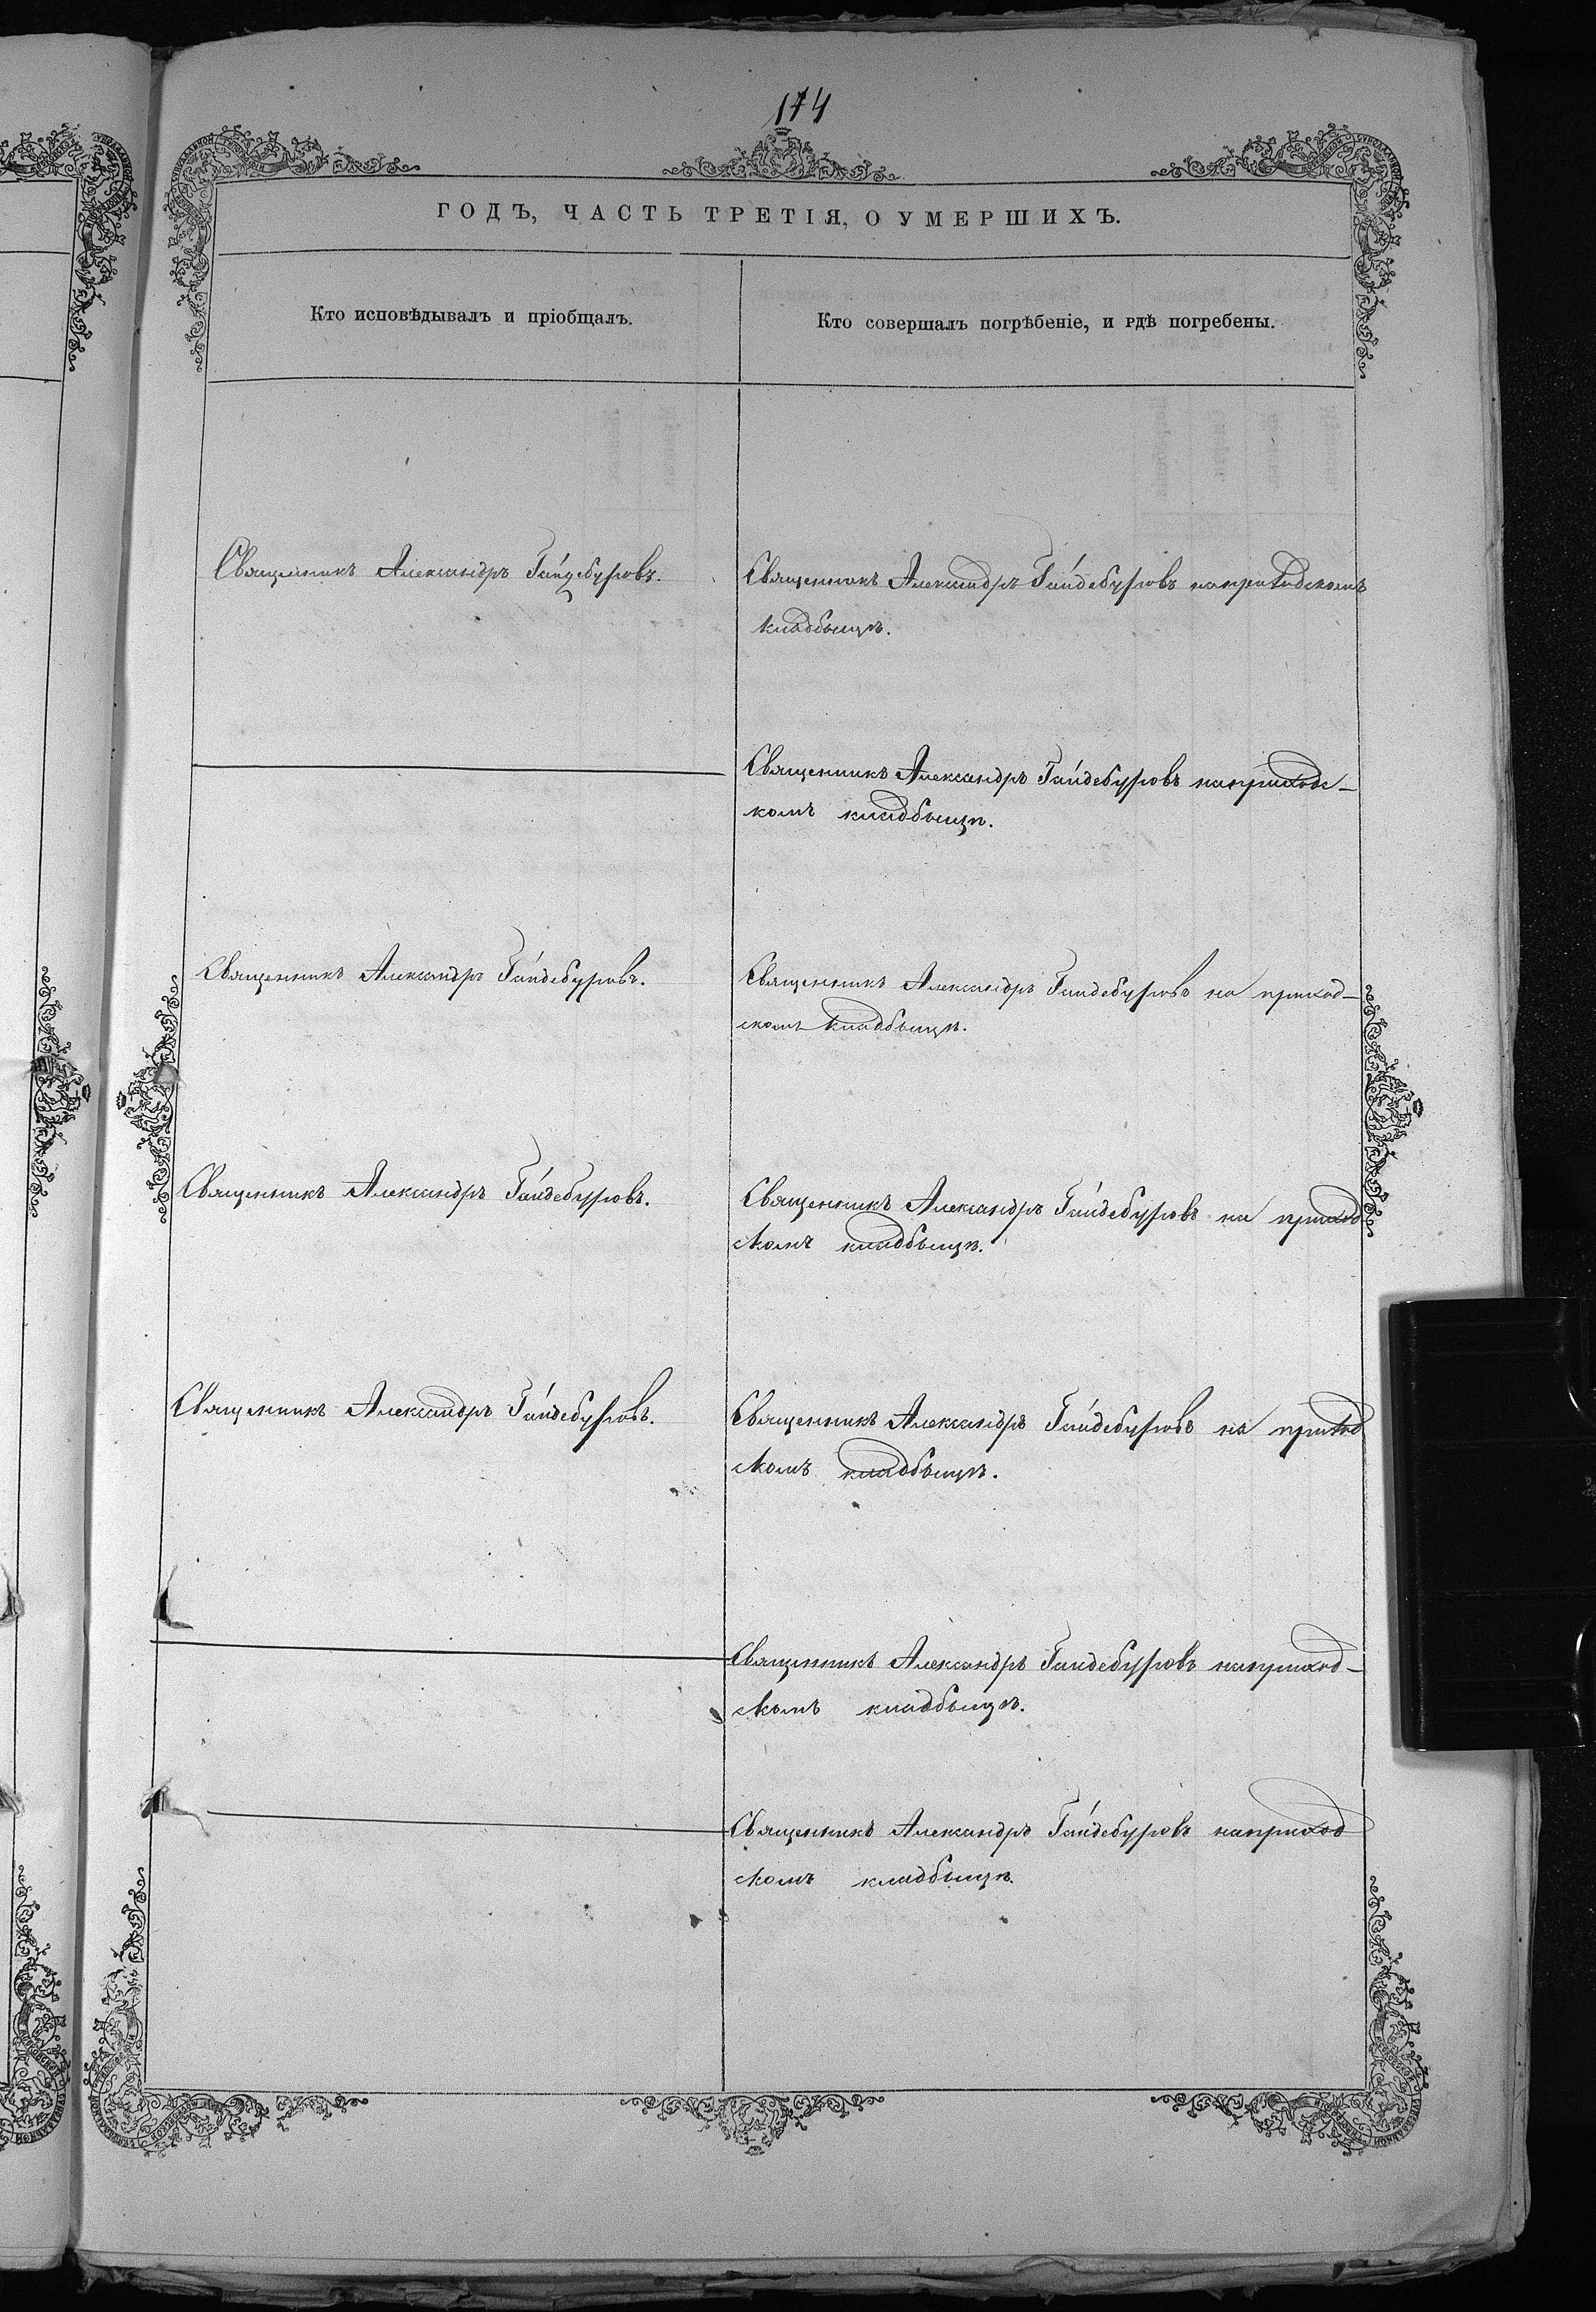 174
ГОДЪ, ЧАСТЬ ТРЕТІЯ, О УМЕРШИХЪ.
Кто исповѣдывалъ и пріобщалъ.
Кто совершалъ погрѣбеніе, и гдѣ погребены.
Священникъ Александръ Гайдебуровъ.
Священникъ Александръ Гайдебуровъ на приходскомъ
кладбищѣ.
Священникъ Александръ Гайдебуровъ на приходс-
комъ кладбищѣ.
Священникъ Александръ Гайдебуровъ.
Священникъ Александръ Гайдебуровъ на приход-
скомъ кладбищѣ.
Священникъ Александръ Гайдебуровъ.
Священникъ Александръ Гайдебуровъ на приход
скомъ кладбищѣ.
Священникъ Александръ Гайдебуровъ.
Священникъ Александръ Гайдебуровъ на приход
скомъ кладбищѣ.
Священникъ Александръ Гайдебуровъ на приход-
скомъ кладбищѣ.
Священникъ Александръ Гайдебуровъ на приход
скомъ кладбищѣ.